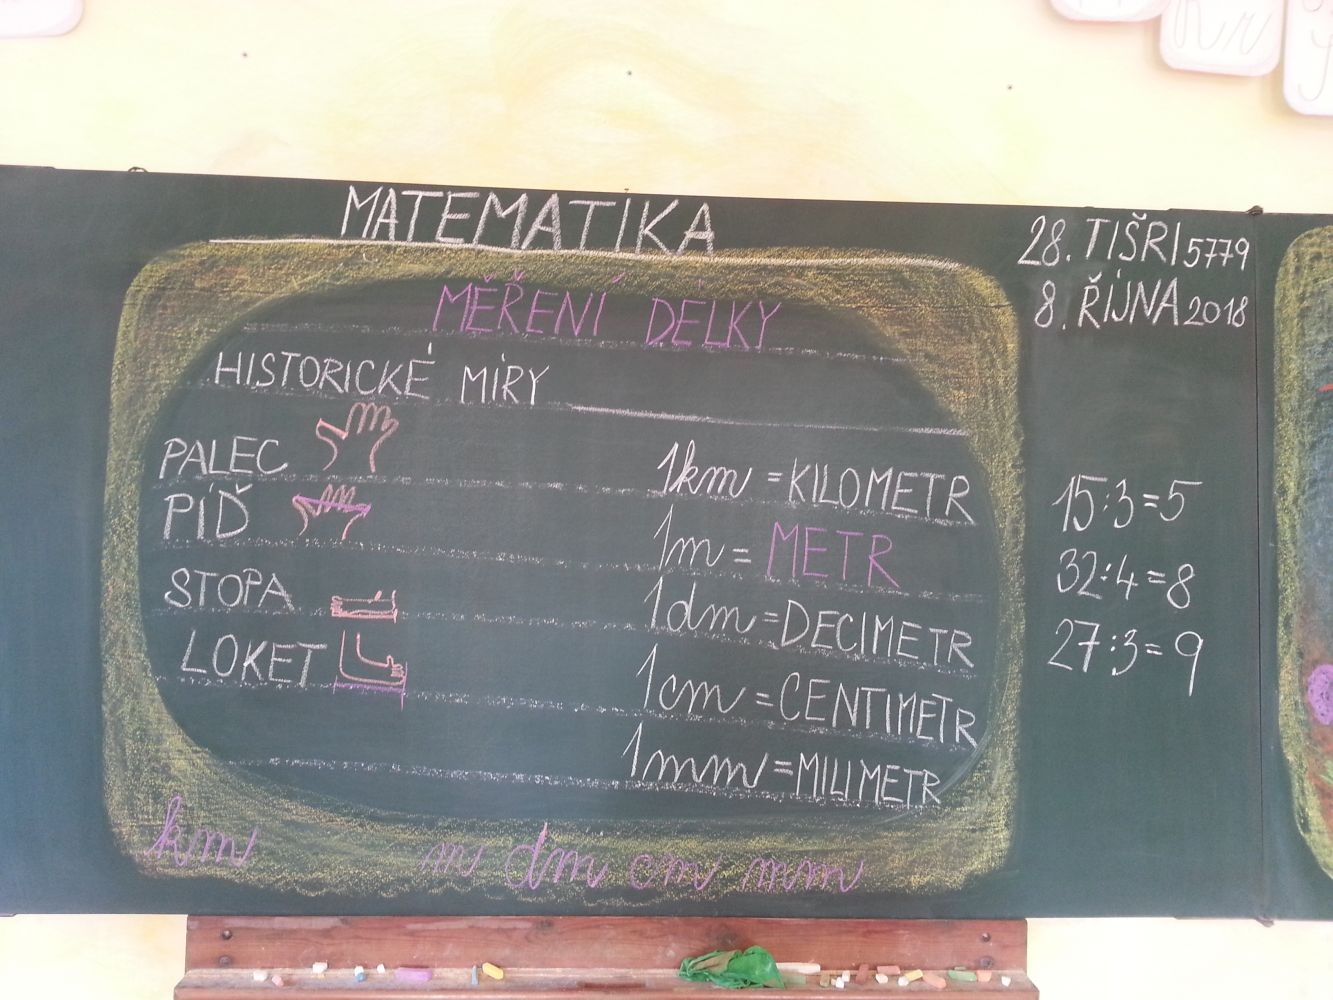 MATEMATIKA
MĚŘENÍ DÉLKY
HISTORICKÉ MÍRY
PALEC
PÍĎ
STOPA
LOKET
1km = KILOMETR
1m = METR
1dm = DECIMETR
1cm = CENTIMETR
1mm = MILIMETR
km m dm cm mm
28. TIŠRI 5779
8. ŘÍJNA 2018
15:3=5
32:4=8
27:3=9